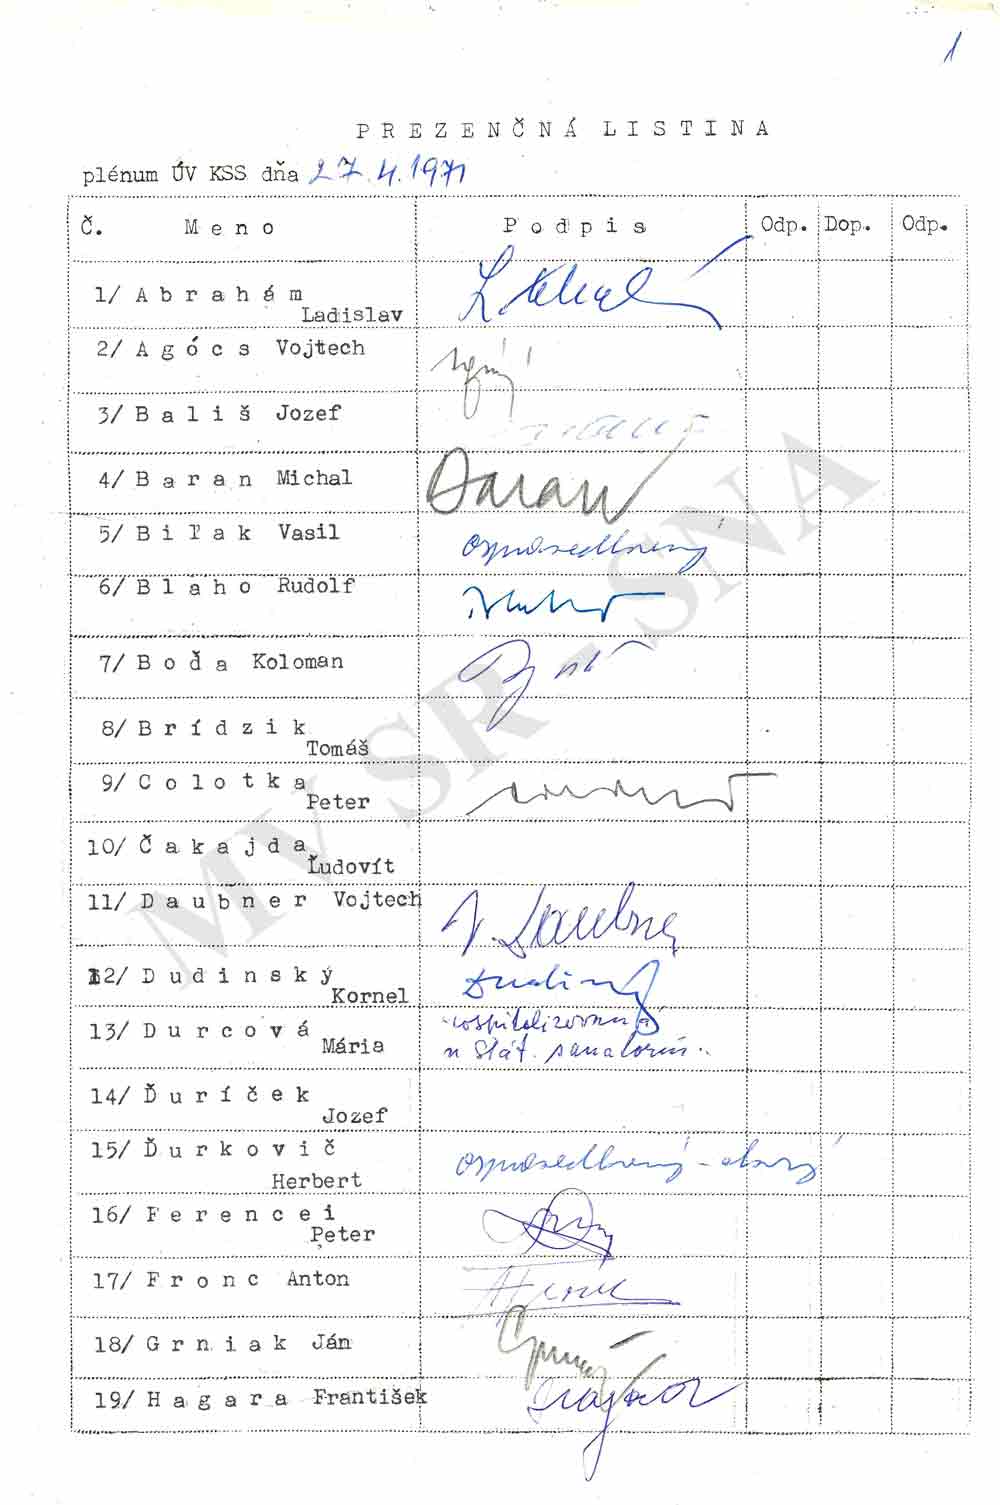 1
PREZENČNÁ LISTINA
plénum ÚV KSS dňa 27.4.1971
Č. Meno Podpis Odp. Dop. Odp.
1/ Abrahám
Ladislav
2/ Agócs Vojtech
3/ Bališ Jozef
4/ Baran Michal Baran
5/ Biľak Vasil ospravedlnený
6/ Bláho Rudolf
7/ Boďa Koloman
8/ Brídzik
Tomáš
9/ Colotka
Peter
10/ Čakajda
Ľudovít
11/ Daubner Vojtech V. Daubner
12/ Dudinský
Kornel
13/ Durcová hospitalizovaná
Mária v štát. sanatoriu
14/ Ďuríček
Jozef
15/ Ďurkovič ospravedlnený - chorý
Herbert
16/ Ferencei
Peter
17/ Fronc Anton
18/ Grniak Ján
19/ Hagara František
MV SR - SNA